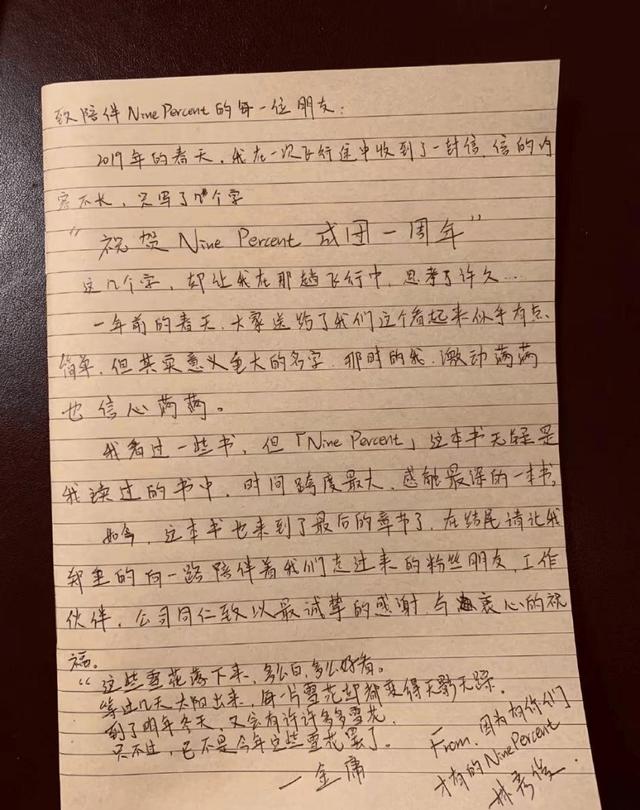 致陪伴Nine Percent的每一位朋友:
2019年的春天,我在一次飞行途中收到了一封信,信的内
容不长,只写了几个字
“祝贺Nine Percent 成团一周年”
这几个字,却让我在那趟飞行中,思考了许久...
一年前的春天,大家送给了我们这个看起来似乎有点
简单,但其实意义重大的名字,那时的我,激动满满
也信心满满。
我看过一些书,但「Nine Percent」这本书无疑是
我读过的书中,时间跨度最大,感触最深的一本书,
如今,这本书也来到了最后的章节了,在结尾请让我
郑重的向一路陪伴着我们走过来的粉丝朋友,工作
伙伴,公司同仁致以最诚挚的感谢,与衷心的祝
福。
“这些雪花落下来,多么白,多么好看。
等过几天太阳出来,每一片雪花却都变得无影无踪。
到了明年冬天,又会有许许多多雪花,
只不过,已不是今年这些雪花罢了。
—金庸
From.因为有你们
才有的NinePercent
林彦俊.